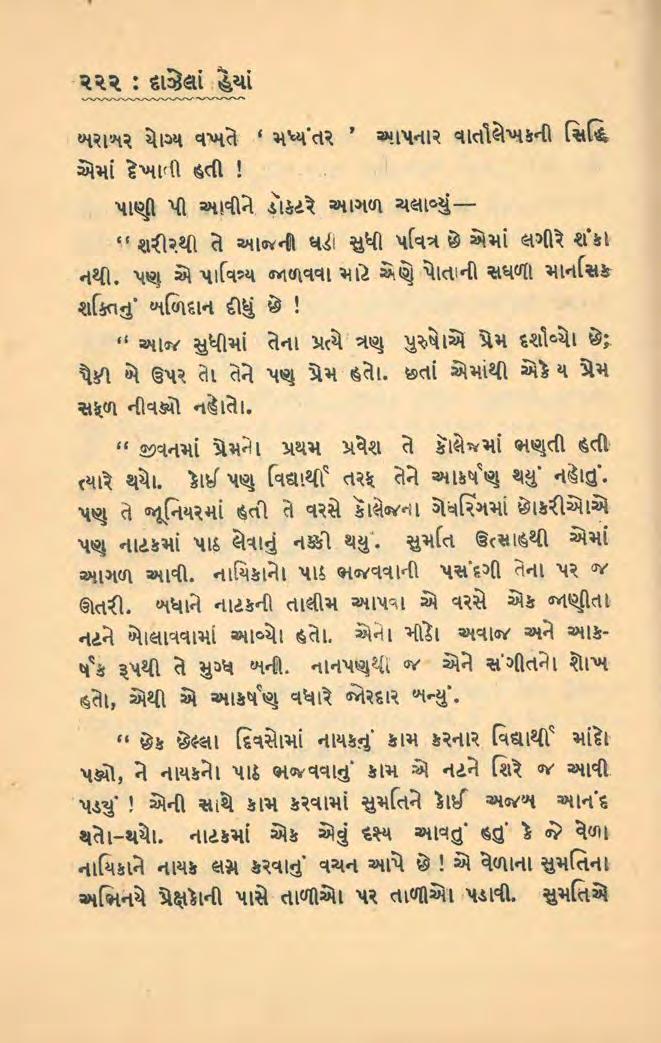 ૨૨૨ : દાઝેલાં હૈયાં
બરાબર યોગ્ય વખતે ‘ મધ્યંતર ’ આપનાર વાર્તાલેખકની સિદ્ધિ
એમાં દેખાતી હતી !
પાણી પી આવીને ડૉકટરે આગળ ચલાવ્યું—
“ શરીરથી તે આજની ઘડી સુધી પવિત્ર છે એમાં લગીરે શંકા
નથી. પણ એ પાવિત્ર્ય જાળવવા માટે એણે પોતાની સઘળી માનસિક
શક્તિનું બળિદાન દીધું છે !
“ આજ સુધીમાં તેના પ્રત્યે ત્રણ પુરુષોએ પ્રેમ દર્શાવ્યો છે;
પૈકી બે ઉપર તો તેને પણ પ્રેમ હતો. છતાં એમાંથી એકે ય પ્રેમ
સફળ નીવડ્યો નહોતો.
“ જીવનમાં પ્રેમનો પ્રથમ પ્રવેશ તે કૉલેજમાં ભણતી હતી
ત્યારે થયો. કોઈ પણ વિદ્યાર્થી તરફ તેને આકર્ષણ થયું નહોતું.
પણ તે જૂનિયરમાં હતી તે વરસે કૉલેજના ગેધરિંગમાં છોકરીઓએ
પણ નાટકમાં પાઠ લેવાનું નક્કી થયું. સુમતિ ઉત્સાહથી એમાં
આગળ આવી. નાયિકાનો પાઠ ભજવવાની પસંદગી તેના પર જ
ઊતરી. બધાને નાટકની તાલીમ આપવા એ વરસે એક જાણીતા
નટને બોલાવવામાં આવ્યો હતો. એનો મીઠો અવાજ અને આક-
ર્ષક રૂપથી તે મુગ્ધ બની. નાનપણથી જ એને સંગીતનો શોખ
હતો, એથી એ આકર્ષણ વધારે જોરદાર બન્યું.
“ છેક છેલ્લા દિવસોમાં નાયકનું કામ કરનાર વિદ્યાર્થી માંદો
પડ્યો, ને નાયકનો પાઠ ભજવવાનું કામ એ નટને શિરે જ આવી
પડયું ! એની સાથે કામ કરવામાં સુમતિને કોઈ અજબ આનંદ
થતો–થયો. નાટકમાં એક એવું દૃશ્ય આવતું હતું કે જે વેળા
નાયિકાને નાયક લગ્ન કરવાનું વચન આપે છે ! એ વેળાના સુમતિના
અભિનયે પ્રેક્ષકોની પાસે તાળીઓ પર તાળીઓ પડાવી. સુમતિએ